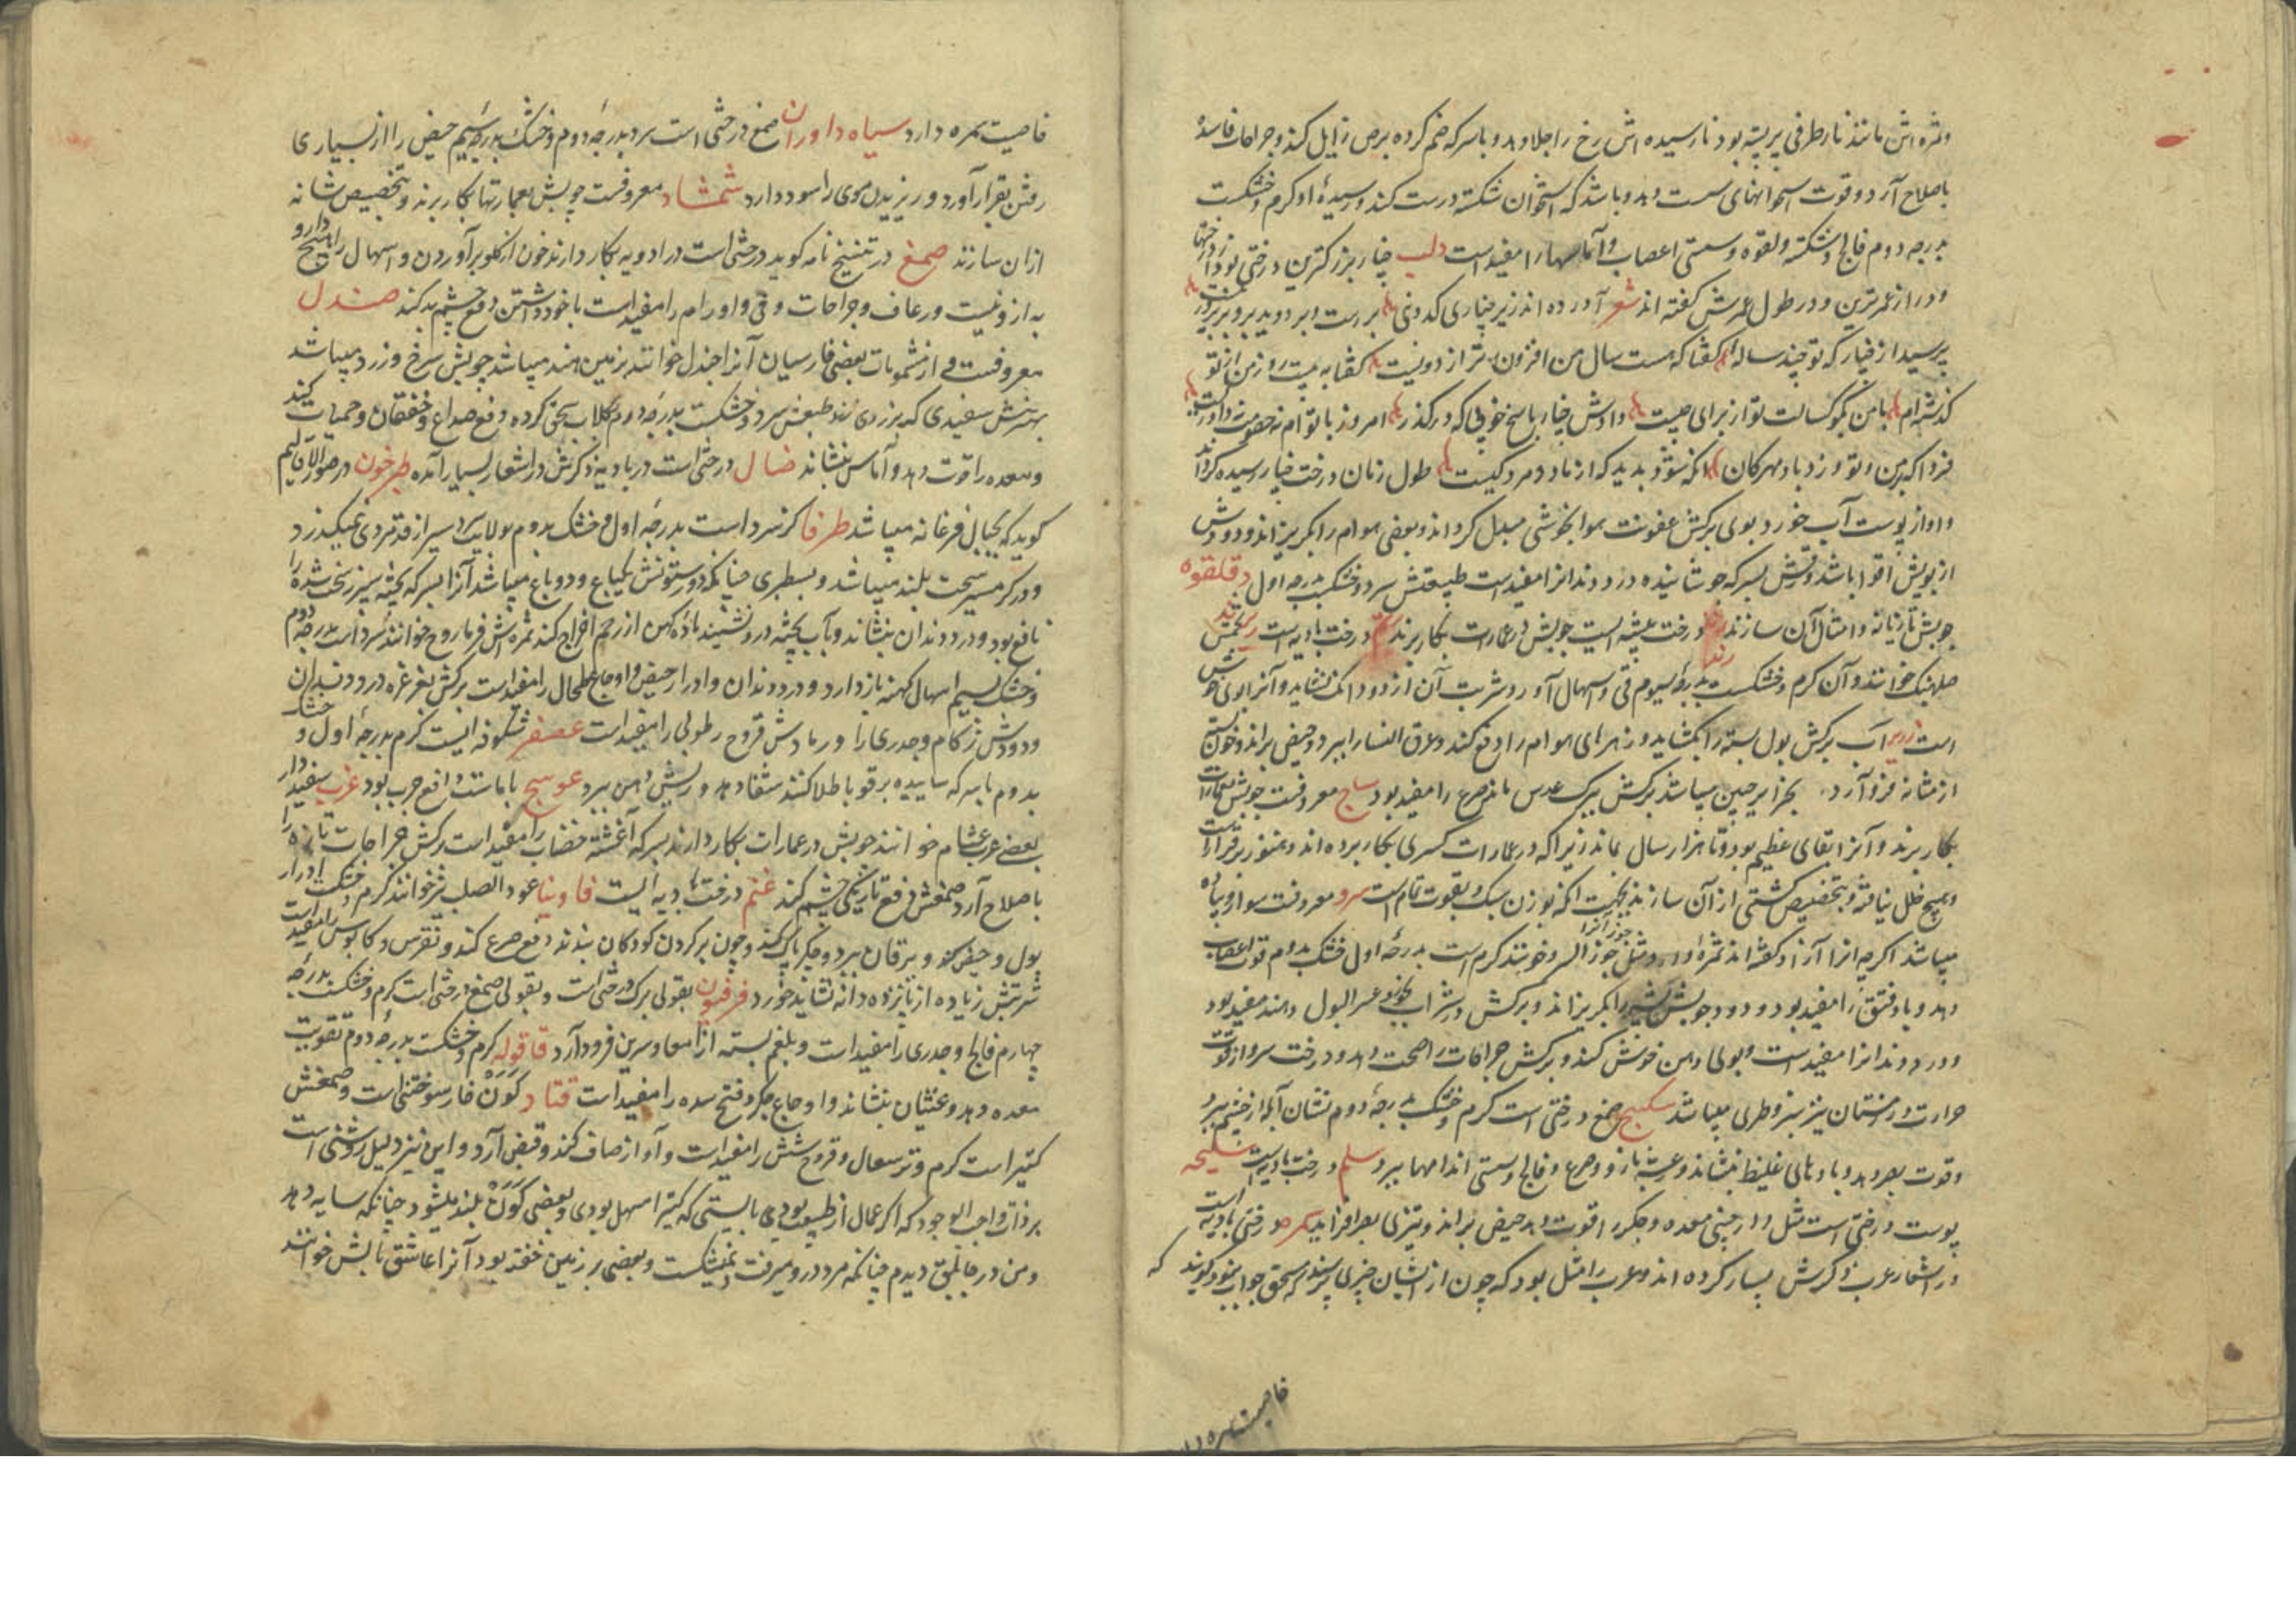 وثمره‌اش مانند نار طرفی پر پسته بود نارسیده‌اش رخ را جلا دهد و با سرکه ضم کرده برص زایل کند و جراحات فاسده
باصلاح آرد و قوت استخوانهای سست دهد و باشد که استخوان شکسته درست کند و رسیدهٔ او گرم و خشکست
بدرجه دوم فالج و سکته و لقوه و سستی اعصاب و آماسها را مفید است دلب چنار بزرگترین درختی بود از درختها
و دراز عمرترین و در طول عمرش گفته‌اند شعر آورده‌اند زیر چناری کدوبنی بر رست و بر دوید برو بر بروز بیست
پرسید از چنار که تو چند ساله‌ای گفتا که هست سال من افزون‌تر از دویست گفتا به بیست روز من از تو
گذشته‌ام با من بگو کسالت تو از برای چیست دادش چنار پاسخ خوبی که درگذر امروز با تو ام نه خصومت نه داوریست
فردا که بر من و تو وزد باد مهرگان آنگه شود پدید که از ما دو مرد کیست طول زمان درخت چنار رسیده گرداند
و او از پوست آب خورد بوی برگش عفونت هوا بخوشی مبدل گرداند و بعضی هوام را بگریزاند و دودش
از بویش اقوا باشد و قشرش بسرکه جوشانیده درد دندانرا مفید است طبیعتش سرد و خشک بدرجه اول دقلقوه
چوبش تازیانه و امثال آن سازند درخت بیشه ایست چوبش در عمارت بکار برند درخت بادیه است
خوانند و آن گرم و خشکست بدرجهٔ سیوم قی و اسهال آورد و شربت آن از دو دانگ نشاید و آنرا بوی خوش
است آب برگش بول بسته را بگشاید و زهرهای هوام را دفع کند و عرق النسا را ببرد و حیض براند و خون بسته
از مثانه فرو آرد بجزایر چین میباشد برگش ببرگ عدس ماند صرع را مفید بود ساج معروفست چوبش بعمارات
بکار برند و آنرا بقای عظیم بود و تا هزار سال بماند زیرا که در عمارات کسری بکار برده‌اند و هنوز برقرار است
و هیچ خلل نیافته و بتخصیص کشتی از آن سازند بجهت آنکه بوزن سبک و بقوت تمام است سرو معروفست سوا و پیاه
میباشد اگرچه آنرا آزاد گفته‌اند ثمره دارد مثل جوز جوز آنرا السرو خوانند گرم است بدرجه اول خشک بدوم قوت اعصاب
دهد و باد فتق را مفید بود و دود چوبش پشه را بگریزاند و برگش در شراب بخورند عسر البول دهند مفید بود
و درد دندانرا مفید است و بوی دهن خوش کند و برگش جراحات را صحت دهد و درخت سرو از قوت
حرارت در زمستان نیز سبز و طری میباشد سکبینج صمغ درختی است گرم و خشک بدرجهٔ دوم نشان آبله از چشم ببرد
و قوت بصر دهد و بادهای غلیظ بنشاند و رعشه باز و صرع و فالج و سستی اندامها ببرد سلم درخت بادیه است سلیخه
پوست درختی است مثل دارچینی معده و جگر را قوت دهد حیض براند و تیزی بصر افزاید سمر درختی بادیه است
در اشعار عرب ذکرش بسیار کرده‌اند و عرب را مثل بود که چون از ایشان چیزی پرسند که مستحق جواب نبود گویند که
خاصیت سمره دارد
خاصیت سمره دارد سیاه داوران صمغ درختی است سرد بدرجه دوم و خشک بدرجه سیم حیض را از بسیاری
رفتن بقرار آورد و ریزیدن موی را سود دارد شمشاد معروفست چوبش بعمارتها بکار برند و بتخصیص شانه
از آن سازند صمغ در تنسخ نامه گوید درختی است در ادویه بکار دارند خون از گلو برآوردن و اسهال را هیچ دارو
به ازو نیست و رعاف و جراحات و قی و اورام را مفید است با خود داشتن دفع چشم بد کند صندل
معروفست و از مشمومات بعضی فارسیان آنرا چندل خوانند بزمین هند میباشد چوبش سرخ و زرد میباشد
بهترینش سفیدی که بزردی زند طبعش سرد و خشکست بدرجه دوم بگلاب سحق کرده دفع صداع و خفقان و حمیات کند
و معده را قوت دهد و آماس بنشاند ضال درختی است در بادیه ذکرش در اشعار بسیار آمده طبرخون در صور الاقالیم
گوید که بجبال فرغانه میباشد طرفا گز سرد است بدرجه اول و خشک بدوم بولایت سردسیر از قد مردی نمیگذرد
و در گرمسیر سخت بلند میباشد و بسطبری چنانکه دو ستونش یکباع و دو باع میباشد آنرا بسرکه پخته سپرز سخت شده را
نافع بود و درد دندان بنشاند و بآب پخته درو نشینند ماده کهن از رحم اخراج کند ثمره‌اش فرماروح خوانند سرد است بدرجه دوم
و خشک بسیم اسهال کهنه باز دارد و درد دندان و ادرار حیض و اوجاع طحال را مفید است برگش بغرغره درد دندان
و دودش زکام و جدری را و رمادش قروح رطوبی را مفید است عصفر شکوفه ایست گرم بدرجه اول و خشک
بدوم با سرکه ساییده بر قوبا طلا کنند شفا دهد و ریش دهن ببرد عوسج با ماست دافع جرب بود غرب سفیدار
بعضی عرب عشام خوانند چوبش در عمارات بکار دارند بسرکه آغشته خضاب را مفید است برگش جراحات تازه را
باصلاح آرد صمغش دفع تاریکی چشم کند غنم درخت بادیه ایست فاوینا عود الصلیب نیز خوانند گرم و خشکست ادرار
بول و حیض کند و یرقان ببرد و جگر پاک کند و چون بر گردن کودکان بندند دفع صرع کند و نقرس و کابوس را مفید است
شربتش زیاده از پانزده دانه نشاید خورد فرفیون بقولی برگ درختی است و بقولی صمغ درختی است گرم و خشکست بدرجه
چهارم فالج و جدری را مفید است و بلغم بسته از امعا و سرین فرود آرد قاقوله گرم و خشکست بدرجه دوم تقویت
معده دهد و غثیان بنشاند و اوجاع جگر و فتح سده را مفید است قتاد گون خار سوختنی است و صمغش
کتیرا است گرم و تر سعال و قروح شش را مفید است و آواز صاف کند و قبض آرد و این نیز دلیل روشنی است
بر ذات واجب الوجود که اگر عمال از طبیعت بودی بایستی که کتیرا مسهل بودی و بعضی گون بلند میشود چنانکه سایه دهد
و من در جابلق دیدم چنانکه مرد درو میرفت و نمیشکست و بعضی بر زمین خفته بود آنرا عاشق بالش خوانند